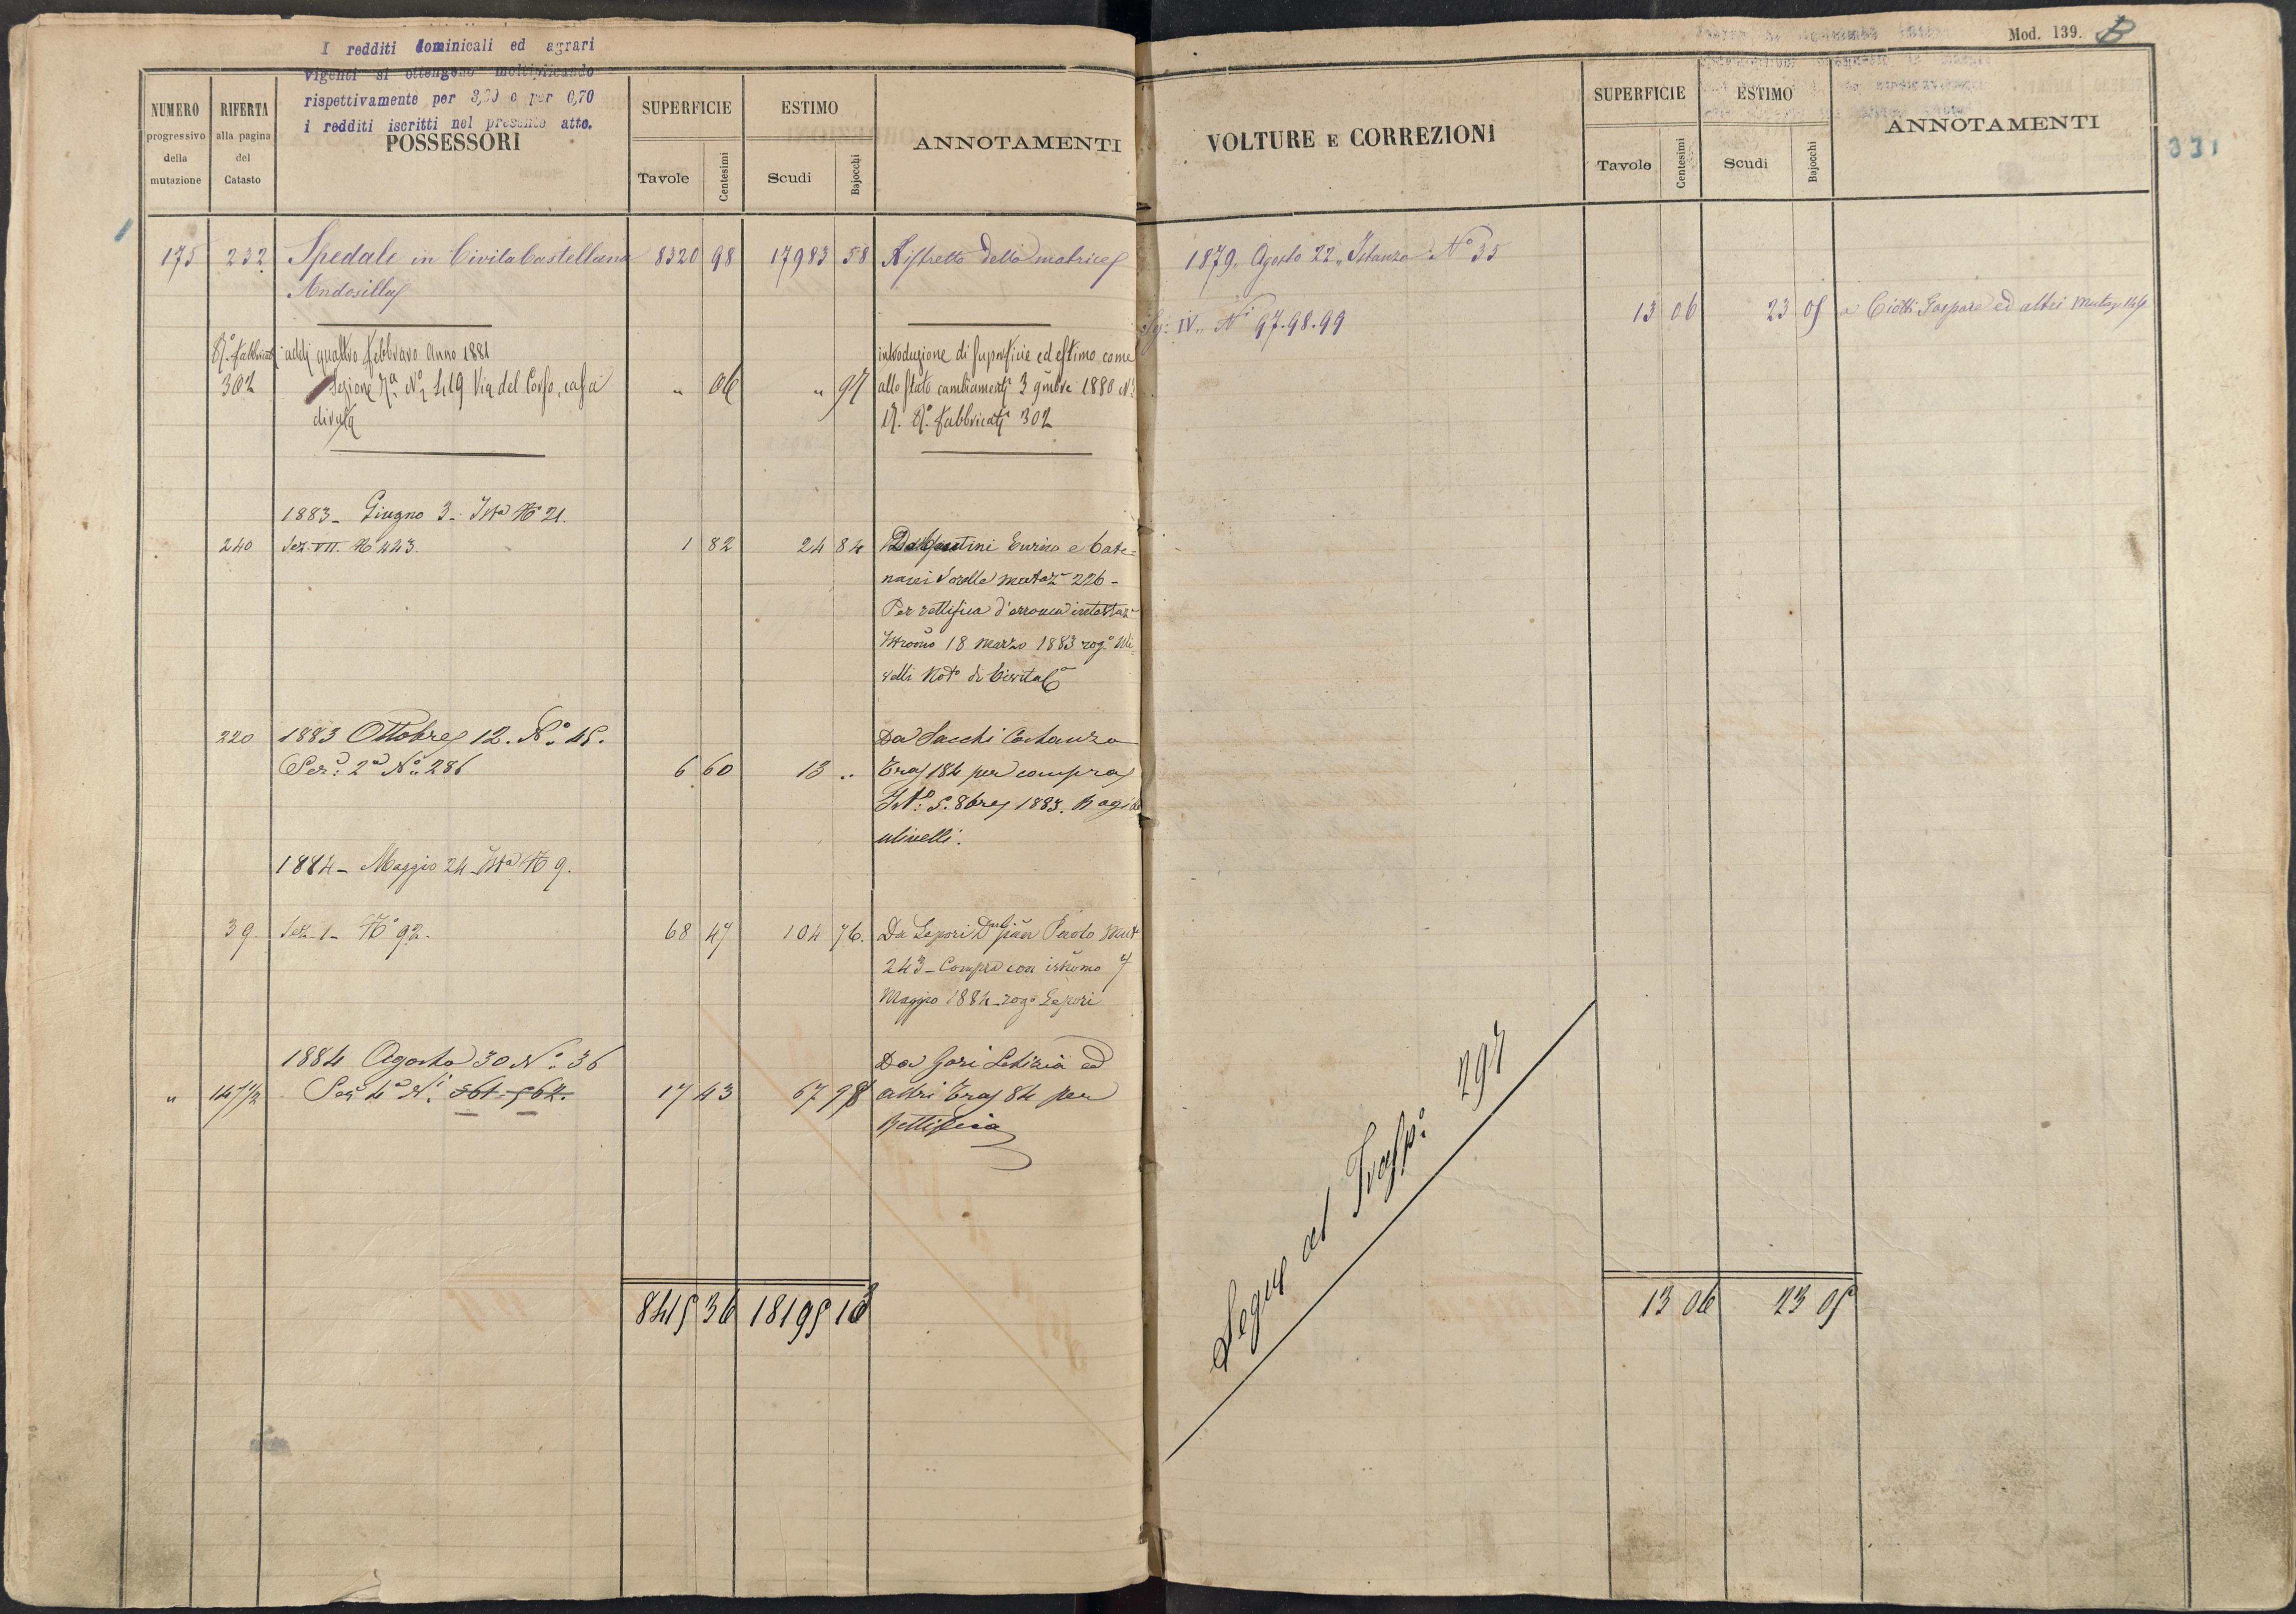 I redditi dominicali ed agrari
vigenti si ottengono moltiplicando
rispettivamente per 3,20 e per 6,70
i redditi iscritti nel presente atto.
NUMERO
progressivo
della
mutazione
RIFERTA
alla pagina
del
Catasto
POSSESSORI
SUPERFICIE
Tavole
Centesimi
ESTIMO
Scudi
Bajocchi
ANNOTAMENTI
175 232 Spedale in Civita Castellana 8320 98 17983 58 Ristretto della matrice
Andosilla
R.o fabbricati addì quattro febbraro anno 1881 introduzione di superficie ed estimo come
302 Sezione 7a No 419 Via del Corso, casa " 06 " 97 allo stato cambiamenti 3 9mbre 1880 No
diruta 17. R.o fabbricati 302
1883 - Giugno 3 - Ista No 21.
240 Sez. VII. No 443. 1 82 24 84 Da Giustini Enrico e Cate=
nacci Sorelle mutaz 226 -
Per rettifica d'erronea intestaz
Istromo 18 Marzo 1883 rog.o Uli=
velli Noto di Civita Ca
220 1883 Ottobre 12. No 45. Da Sacchi Costanza
Sez: 2a No 286 6 60 13 .. Tras 184 per compra
Isto: 5. 8bre 1883. Rogito
Ulivelli.
1884 - Maggio 24 - Ista No 9.
39. Sez. 1 - No 92. 68 47 104 76. Da Lepori Gian Paolo Mut
243 - Compra con istromo 7
Maggio 1884 - rogo Lepori
1884 Agosto 30 No 36 Da Gori Letizia ed
" 147 1/2 Sez 4a Ni 561 - 562. 17 43 67 98 altri Tras 84 per
Rettifica
8415 36 18195 13
Mod. 139. B
VOLTURE E CORREZIONI
SUPERFICIE
Tavole
Centesimi
ESTIMO
Scudi
Bajocchi
ANNOTAMENTI
331
1879. Agosto 22. Istanza No 35
Sez: IV. Ni 97.98.99 13 06 23 05 a Ciotti Gaspare ed altri Mutaz. 144
Segue al Trasp: 297
13 06 23 05